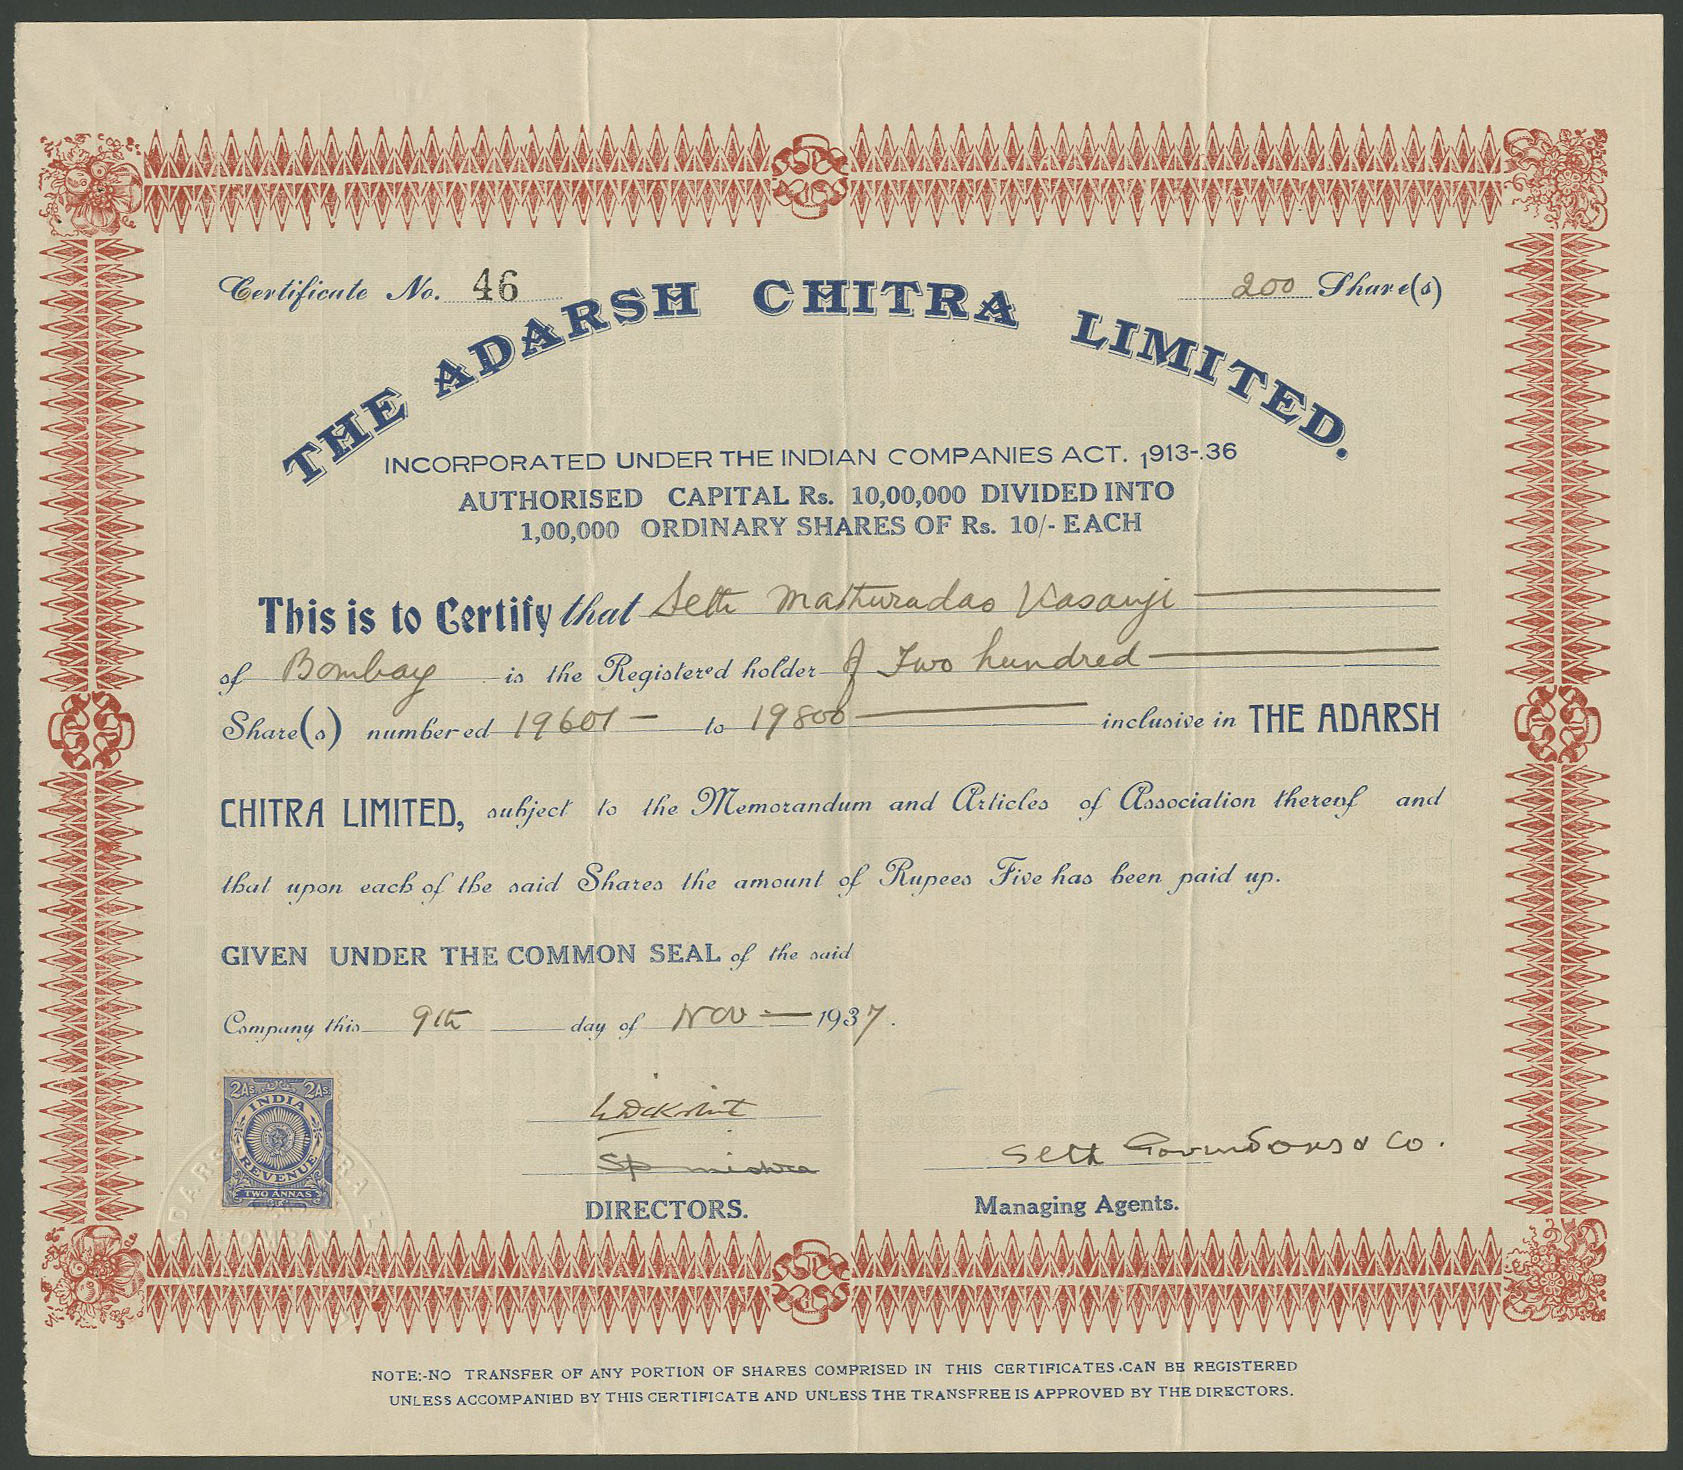 Certificate No. 46
200 Share(s)
THE ADARSH CHITRA LIMITED.
INCORPORATED UNDER THE INDIAN COMPANIES ACT. 1913-.36
AUTHORISED CAPITAL Rs. 10,00,000 DIVIDED INTO
1,00,000 ORDINARY SHARES OF Rs. 10/- EACH
This is to Certify that Seth Mathuradas Vasanji
of Bombay is the Registered holder of Two hundred
Share(s) numbered 19601 — to 19800 — inclusive in THE ADARSH
CHITRA LIMITED, subject to the Memorandum and Articles of Association thereof and
that upon each of the said Shares the amount of Rupees Five has been paid up.
GIVEN UNDER THE COMMON SEAL of the said
Company this 9th day of Nov — 1937.
2As. 2As.
INDIA
REVENUE
TWO ANNAS
SP Mishra
Seth Govindons & Co.
DIRECTORS.
Managing Agents.
NOTE:-NO TRANSFER OF ANY PORTION OF SHARES COMPRISED IN THIS CERTIFICATES.CAN BE REGISTERED
UNLESS ACCOMPANIED BY THIS CERTIFICATE AND UNLESS THE TRANSFREE IS APPROVED BY THE DIRECTORS.